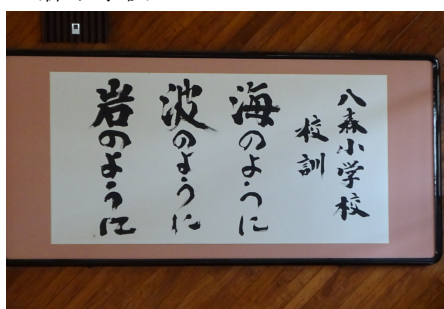 八森小学校
校訓
海のように
波のように
岩のように